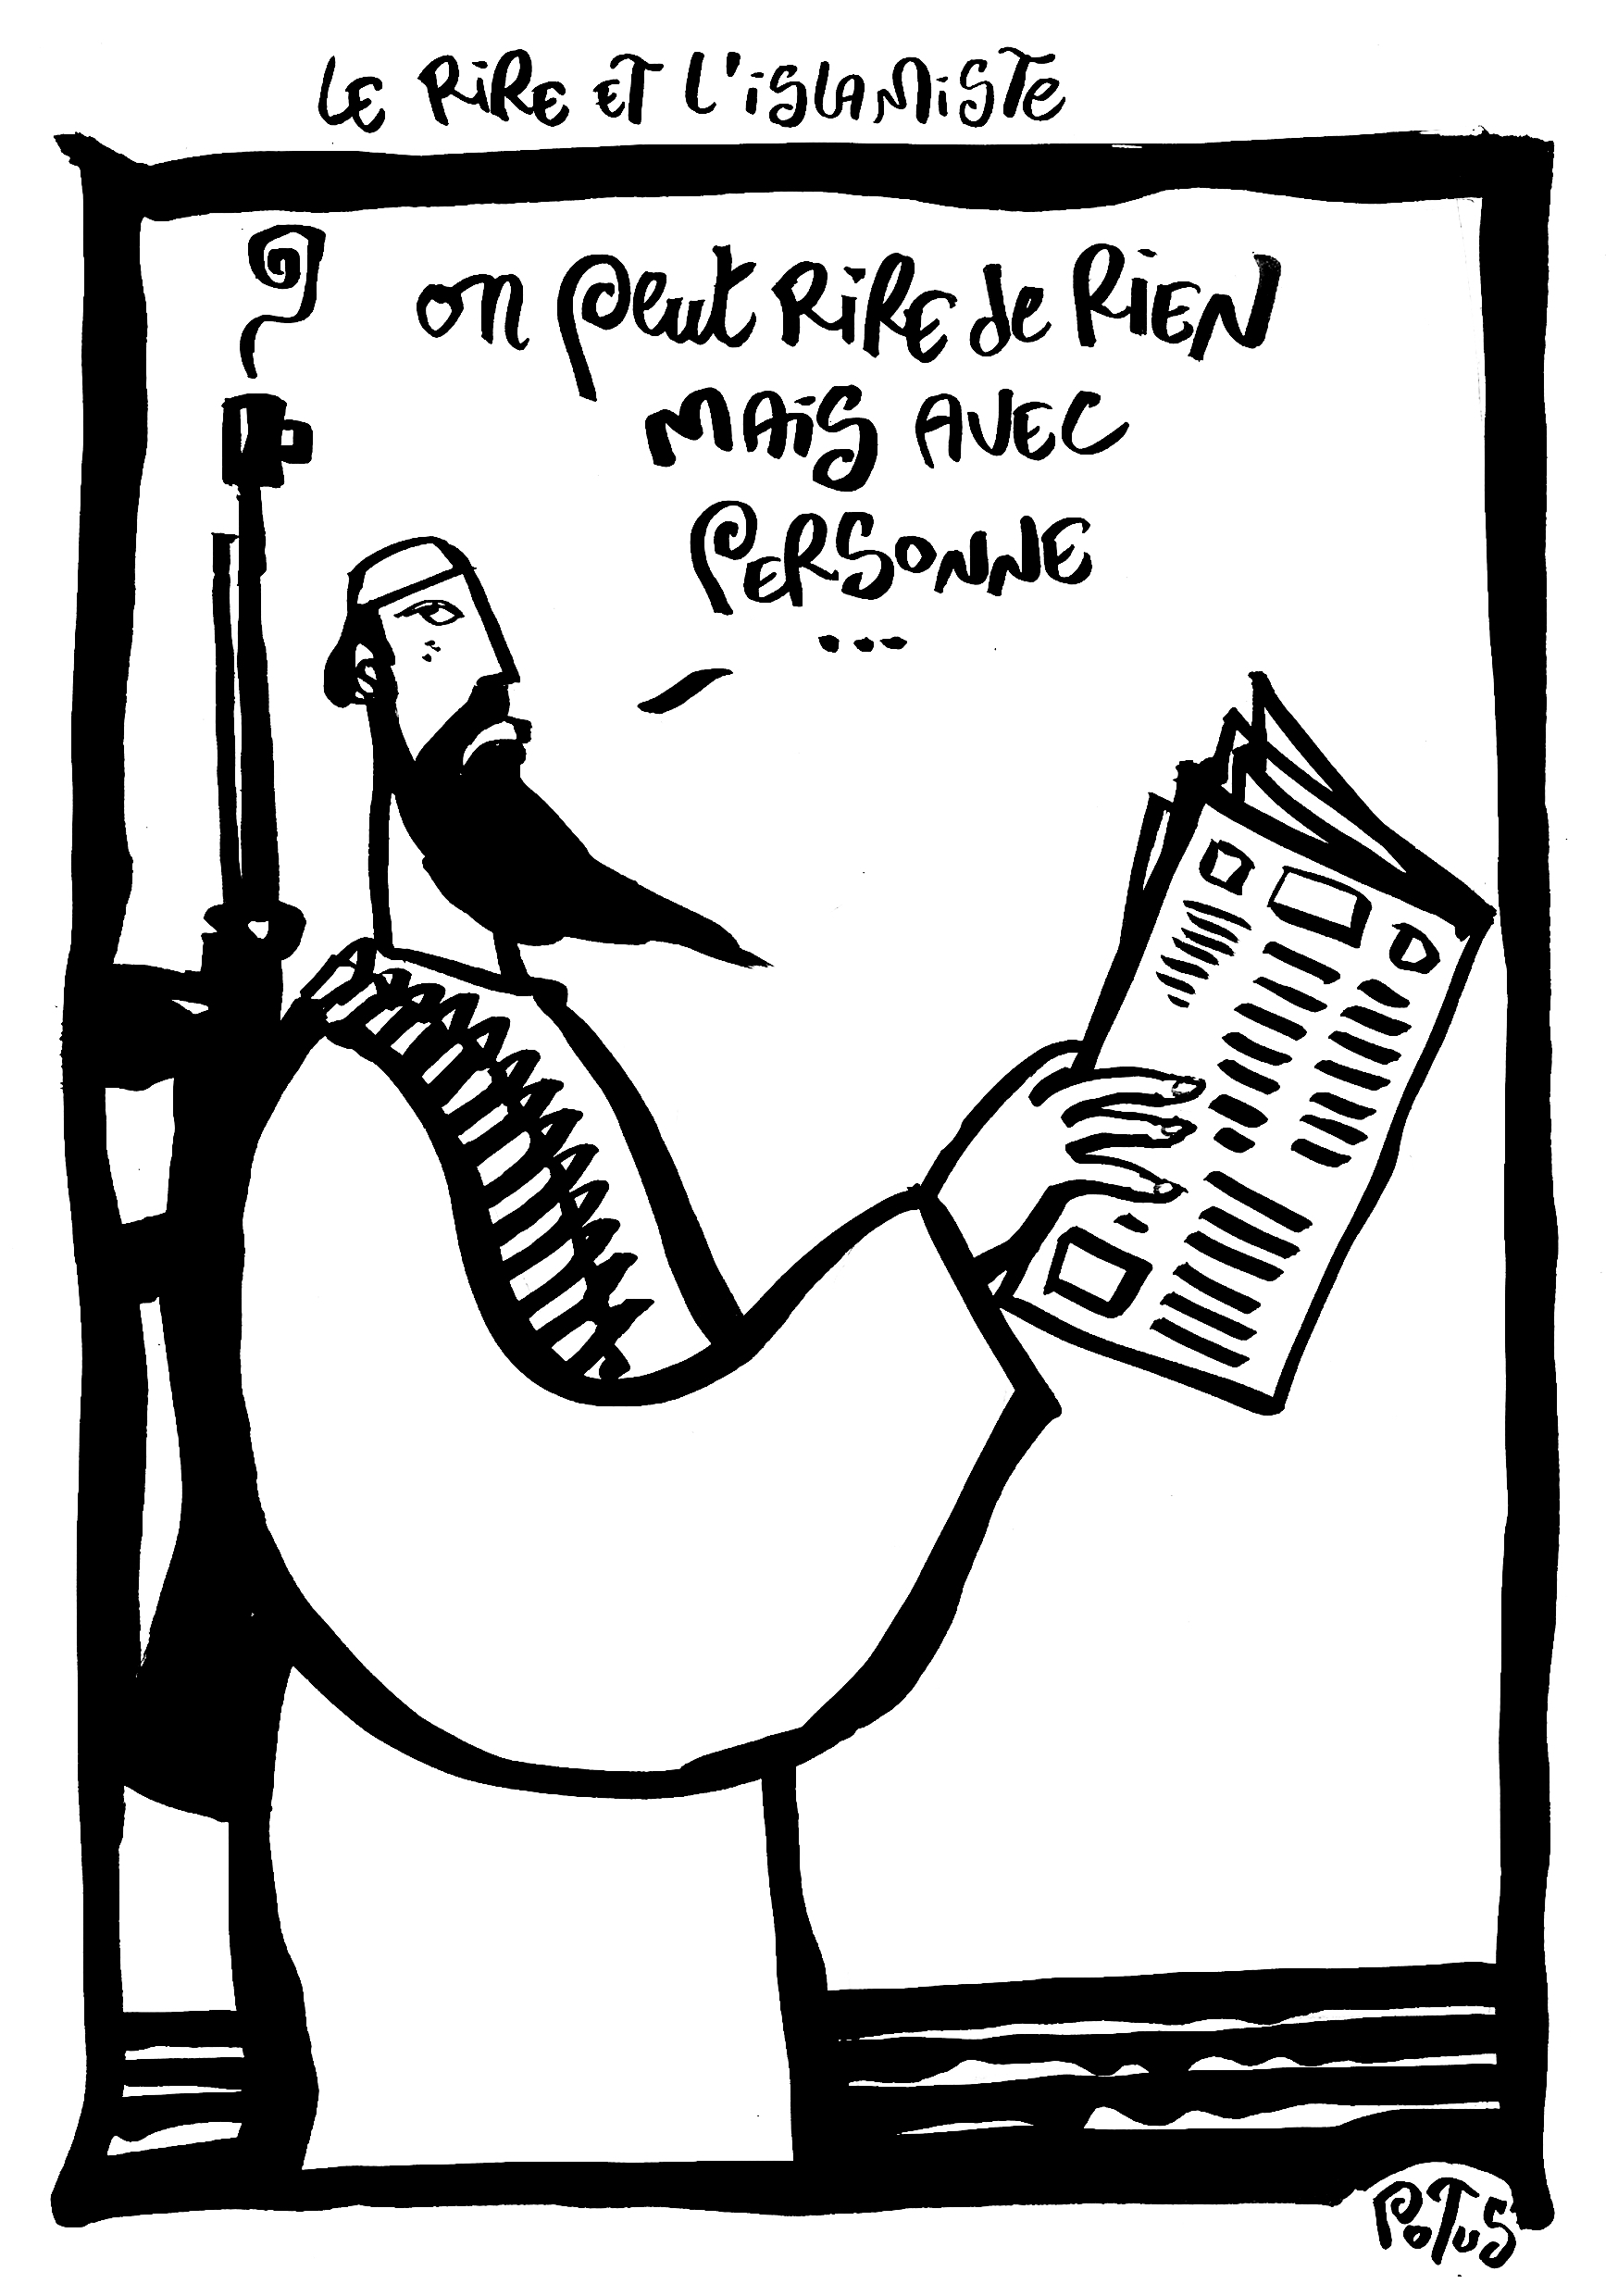 Le RiRe eT L'iSLAMiSTe
on peut RiRe de RiEN
MAiS AVEC
PERSONNE
...
PoTuS